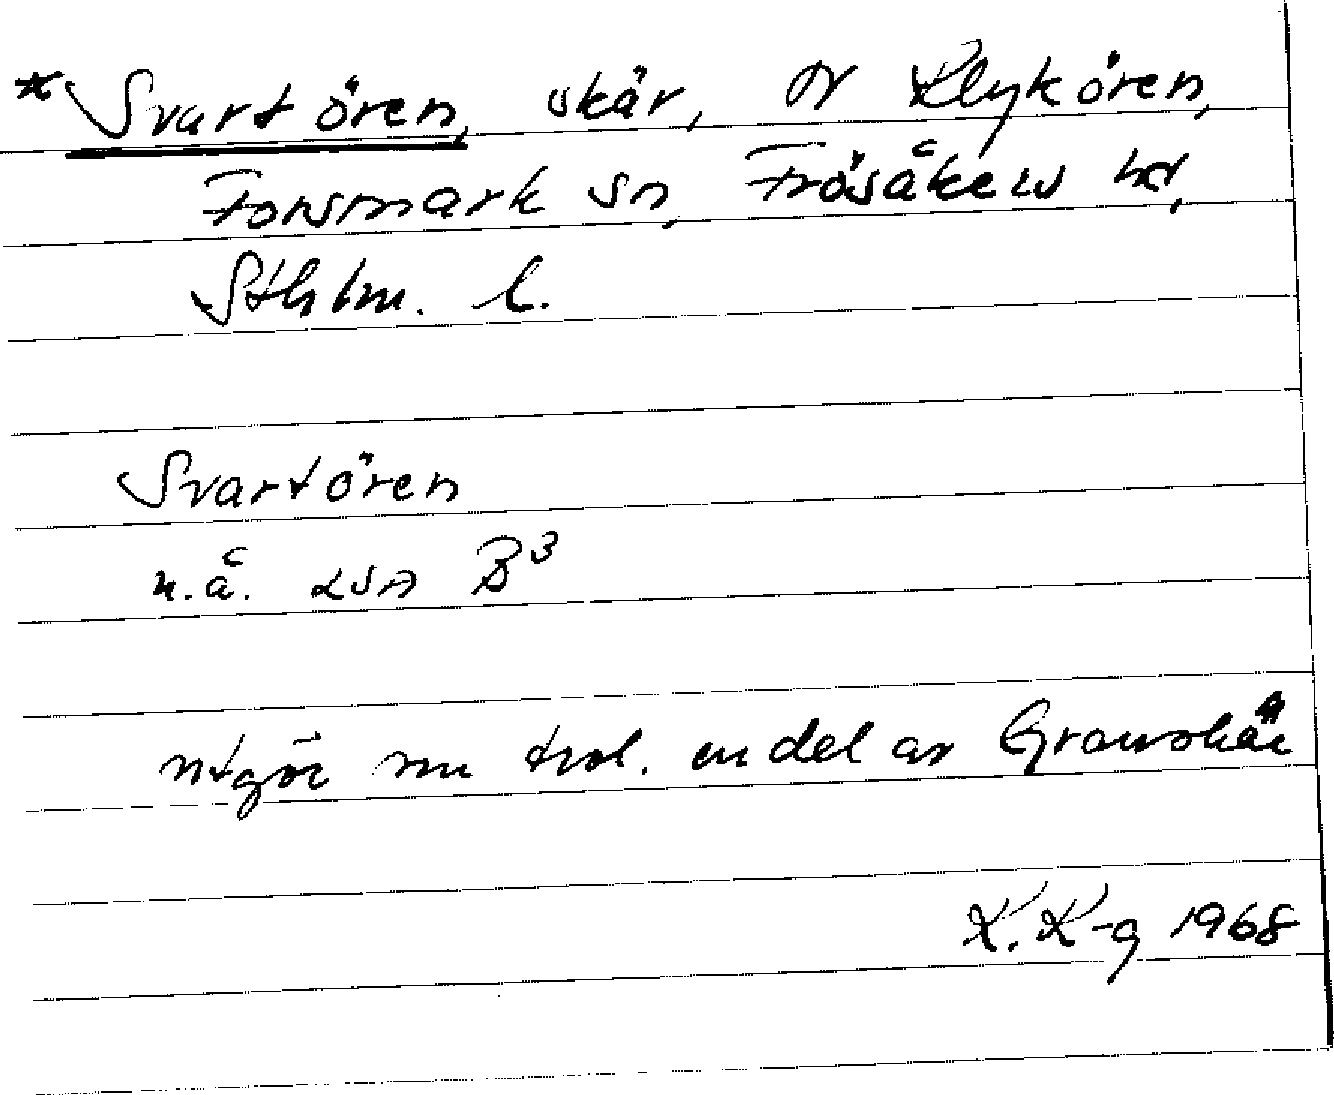 * Svartören, skär, N Klykören,
Forsmark sn, Frösåkers hd,
Sthlm. l.
Svartören
n.å. LSA B³
utgör nu trol. en del av Granskär
K. K-g 1968